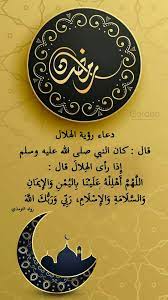 رمضان
دعاء رؤية الهلال
قال : كان النبي صلى الله عليه وسلم
إذا رأى الهلال قال :
اللَّهُمَّ أَهْلِلْهُ عَلَيْنَا بِالْيُمْنِ وَالْإِيمَانِ
وَالسَّلَامَةِ وَالْإِسْلَامِ، رَبِّي وَرَبُّكَ اللَّهُ
رواه الترمذي